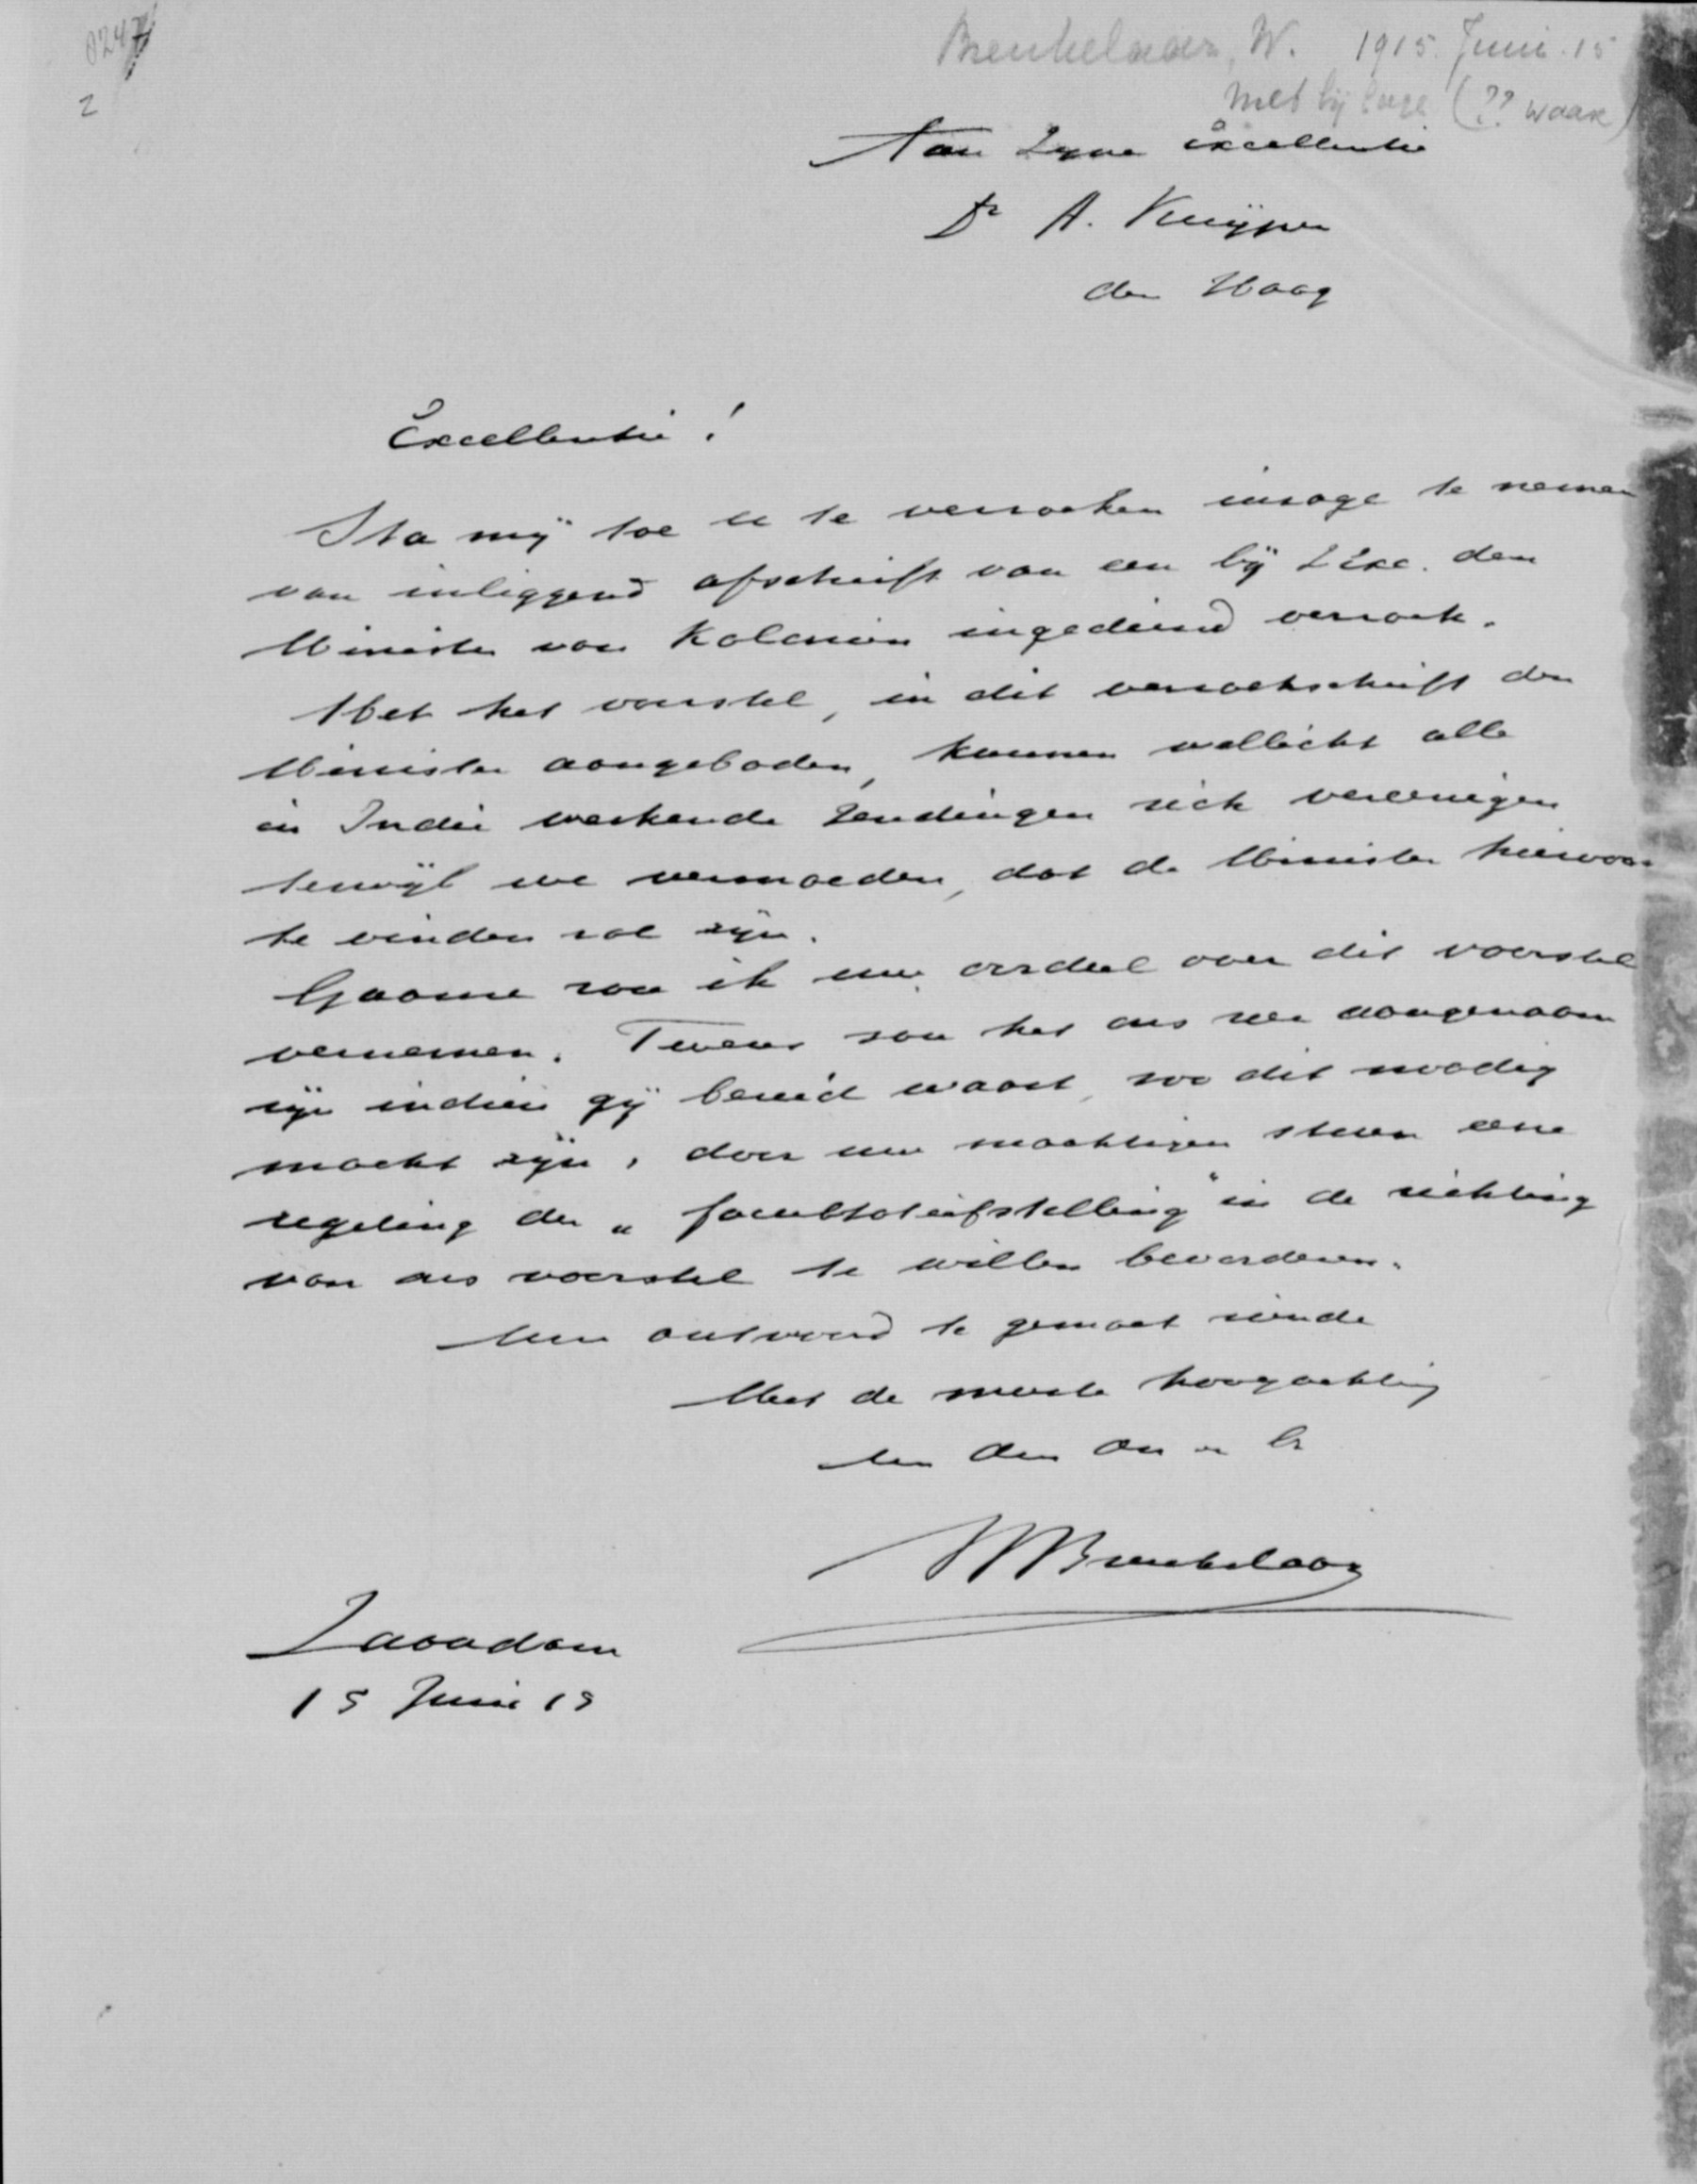 0247
2
Breukelaar, W. 1915. Juni. 15
met bijlage (?? waar)
Aan Zijne Excellentie
Dr A. Kuijper
den Haag
Excellentie!
Sta mij toe u te verzoeken inzage te nemen
van inliggend afschrift van een bij Z Exc. den
Minister van Koloniën ingediend verzoek.
Met het voorstel, in dit verzoekschrift den
Minister aangeboden, kunnen wellicht alle
in Indië werkende Zendingen zich vereenigen
terwijl we vermoeden, dat de Minister hiervoor
te vinden zal zijn.
Gaarne zou ik uw oordeel over dit voorstel
vernemen. Tevens zou het ons zeer aangenaam
zijn indien gij bereid waart, zoo dit noodig
mocht zijn, door uw machtigen steun eene
regeling der „facultatiefstelling" in de richting
van ons voorstel te willen bevorderen.
Uw antwoord te gemoet ziende
Met de meeste hoogachting
Uw
WBreukelaar
Zaandam
15 Juni 15